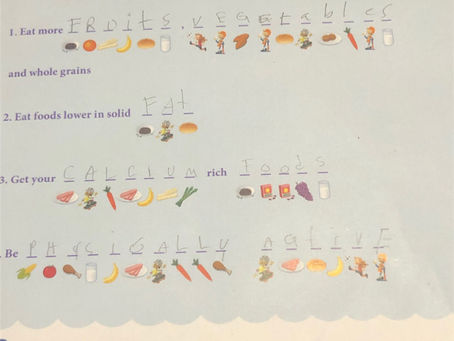 1. Eat more FRuitS, vEgEtablES
and whole grains
2. Eat foods lower in solid FAt
3. Get your CALCIUM rich FoodS
. Be PHYSICALLY ACtIVE